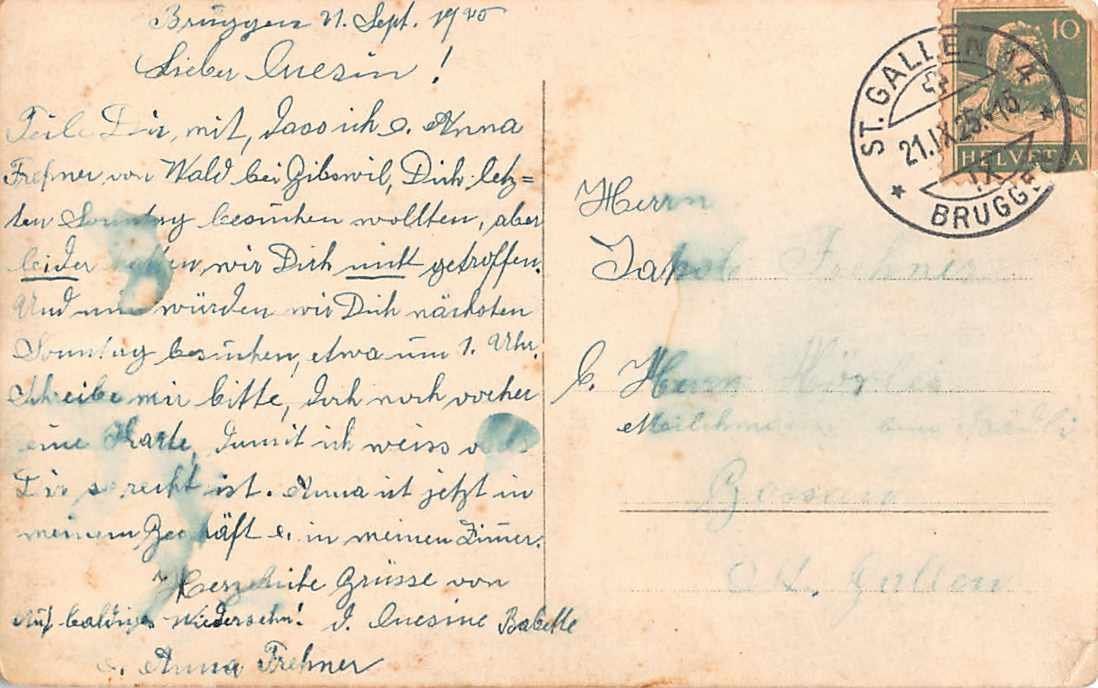 Bruggen 21. Sept. 1925
Lieber Cuesin!
Teile Dir, mit, dass ich u. Anna
Frehner von Wald bei Gibswil, Dich letz=
ten Sonntag besuchen wollten, aber
leider hatten wir Dich nicht getroffen.
Und nun würden wir Dich nächsten
Sonntag besuchen, etwa um 1. Uhr.
Schreibe mir bitte, doch noch vorher
eine Karte, damit ich weiss ob es
Dir so recht ist. Anna ist jetzt in
meinem Geschäft u. in meinen Zimmer.
Herzliche Grüsse von
Auf baldiges Wiedersehn! d. Cuesine Babette
u. Anna Frehner
10
HELVETIA
ST. GALLEN 14
21.IX.25.
BRUGGEN
Herrn
Jakob Frehner
b. Herrn
Gossau
St. Gallen